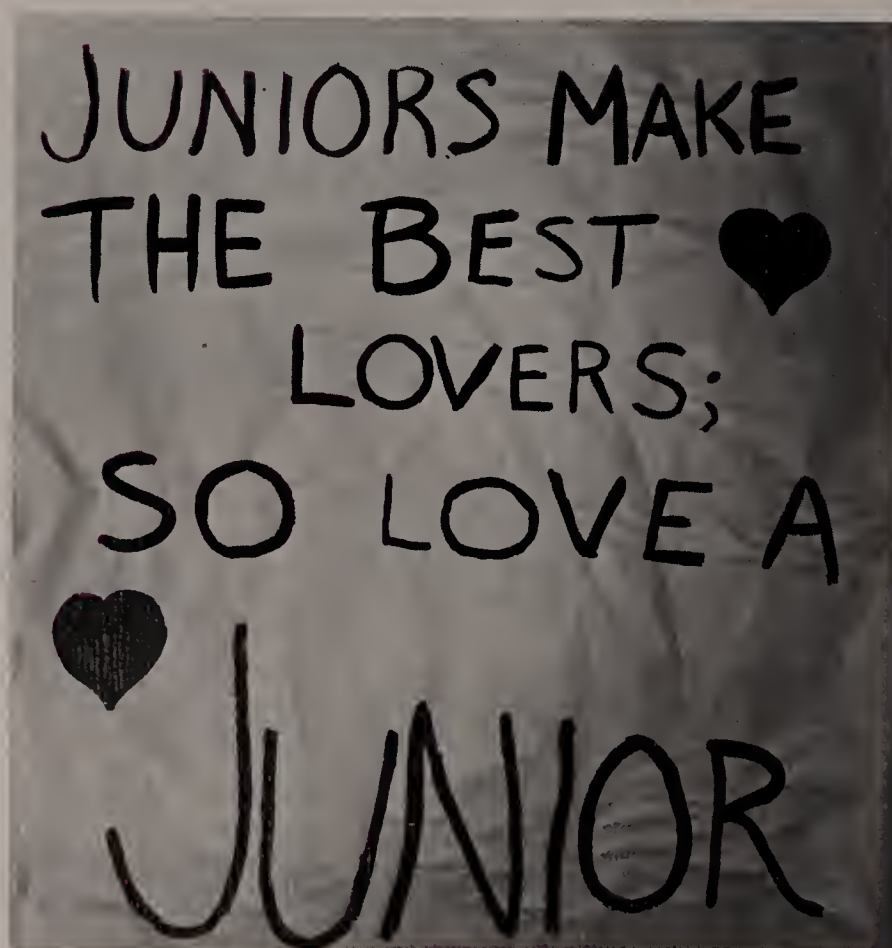 JUNIORS MAKE
THE BEST
LOVERS;
SO LOVE A
JUNIOR